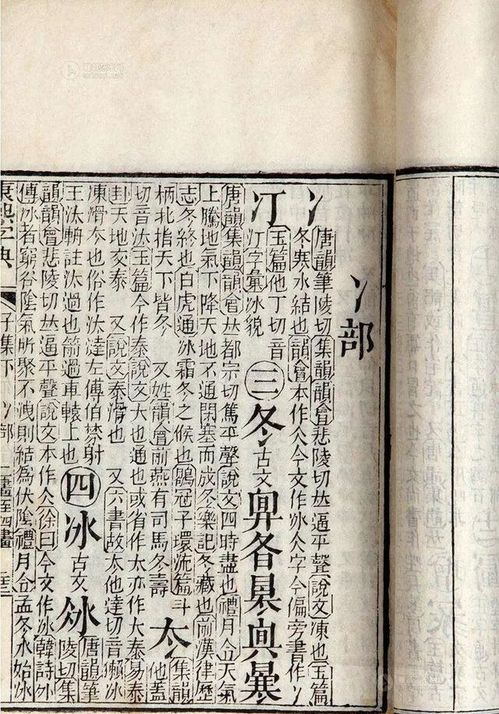 冫部
冫
唐韻筆陵切集韻韻會悲陵切𠀤逼平聲說文凍也玉篇
冬寒水結也韻會本作仌今文作冰仌字今偏旁書作冫
㓅
玉篇他丁切音
汀字彙冰貌
三 冬 古文
唐韻集韻韻會𠀤都宗切篤平聲說文四時盡也禮月令天氣
上騰地氣下降天地不通閉塞而成冬樂記冬藏也前漢律歷
志冬終也白虎通冰霜冬之候也鶡冠子環流篇斗
柄北指天下皆冬 又姓韻會前燕有司馬冬壽
冭
集韻他蓋
切音汰玉篇今作泰說文大也通也或省作太亦作大易泰
卦天地交泰 又說文泰滑也 又六書故冭他達切音獺冰
凍滑夲也俗作汰澾左傳伯棼射
王汰輈註汰過也箭過車轅上也
四 冰 古文
唐韻
陵切集
韻韻會悲陵切𠀤逼平聲說文本作仌徐曰今文作冰韓詩外
傳冰者窮谷陰氣所聚不洩則結為伏陰禮月令孟冬水始冰
康熙字典 子集下 冫部